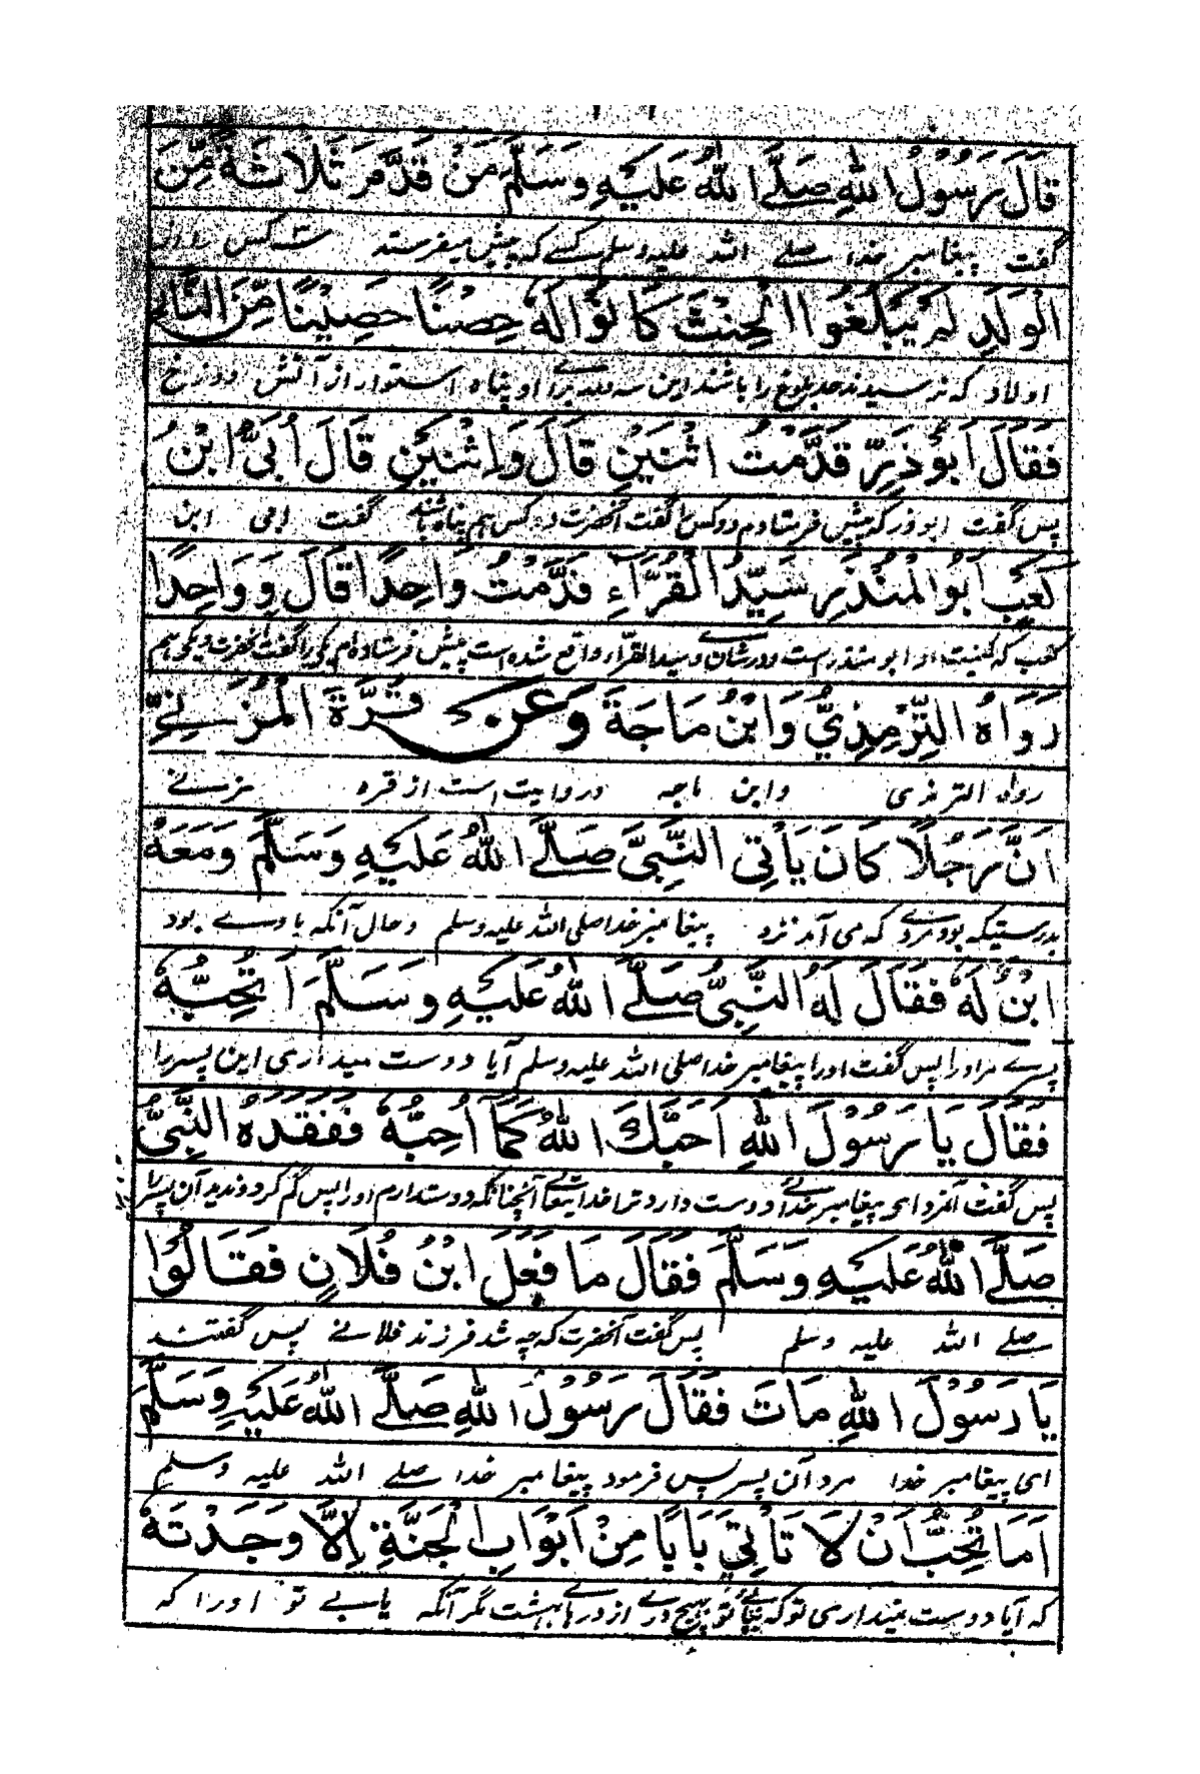 قَالَ رَسُوْلُ اللهِ صَلَّے اللهُ عَلَيْهِ وَسَلَّمَ مَنْ قَدَّمَ ثَلَاثَةً مِّنَ
گفت پیغامبر خدا صلے اللہ علیہ وسلم کسے کہ پیش میفرستد سہ کس را از
الْوَلَدِ لَمْ يَبْلُغُوا الْحِنْثَ كَانُوْا لَهٗ حِصْنًا حَصِيْنًا مِّنَ النَّارِ
اولاد کہ نرسیدند حد بلوغ را باشند این سہ ولد برائے او پناہ استوار از آتش دوزخ
فَقَالَ اَبُوْ ذَرٍّ قَدَّمْتُ اثْنَيْنِ قَالَ وَاثْنَيْنِ قَالَ اُبَيُّ ابْنُ
پس گفت ابو ذر کہ پیش فرستادم دو کس را گفت آنحضرت دو کس ہم پناہ باشند گفت ابی ابن
كَعْبٍ اَبُو الْمُنْذِرِ سَيِّدُ الْقُرَّآءِ قَدَّمْتُ وَاحِدًا قَالَ وَوَاحِدًا
کعب کہ کنیت او ابو منذر است و در شان وے سید القراء واقع شدہ است پیش فرستادہ ام یکی را گفت آنحضرت و یکی ہم
رَوَاهُ التِّرْمِذِيُّ وَابْنُ مَاجَةَ وَعَنْ قُرَّةَ الْمُزَنِيِّ
رواہ الترمذی وابن ماجہ و روایت است از قرہ مزنے
اَنَّ رَجُلًا كَانَ يَأْتِي النَّبِيَّ صَلَّے اللهُ عَلَيْهِ وَسَلَّمَ وَمَعَهٗ
بدرستیکہ بود مردے کہ می آمد نزد پیغامبر خدا صلی اللہ علیہ وسلم و حال آنکہ با وے بود
ابْنٌ لَهٗ فَقَالَ لَهُ النَّبِيُّ صَلَّے اللهُ عَلَيْهِ وَسَلَّمَ اَتُحِبُّهٗ
پسرے مر او را پس گفت اورا پیغامبر خدا صلی اللہ علیہ وسلم آیا دوست میداری این پسر را
فَقَالَ يَا رَسُوْلَ اللهِ اَحَبَّكَ اللهُ كَمَا اُحِبُّهٗ فَفَقَدَهُ النَّبِيُّ
پس گفت آنمرد ای پیغامبر خدائے دوست دارد ترا خدا یتعالے آنچنانکہ دوست دارم او را پس گم کرد و ندید آن پسر را
صَلَّے اللهُ عَلَيْهِ وَسَلَّمَ فَقَالَ مَا فَعَلَ ابْنُ فُلَانٍ فَقَالُوْا
صلے اللہ علیہ وسلم پس گفت آنحضرت کہ چہ شد فرزند فلانے پس گفتند
يَا رَسُوْلَ اللهِ مَاتَ فَقَالَ رَسُوْلُ اللهِ صَلَّے اللهُ عَلَيْهِ وَسَلَّمَ
ای پیغامبر خدا مرد آن پسر پس فرمود پیغامبر خدا صلے اللہ علیہ وسلم
اَمَا تُحِبُّ اَنْ لَا تَأْتِيَ بَابًا مِنْ اَبْوَابِ الْجَنَّةِ اِلَّا وَجَدْتَهٗ
کہ آیا دوست نمیداری تو کہ نیائے تو ہیچ درے از درہائے بہشت مگر آنکہ یابے تو اورا کہ